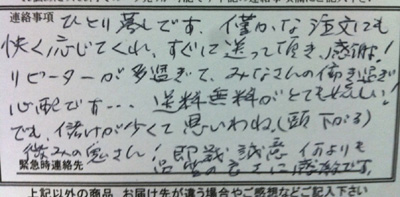 連絡事項
ひとり暮しです、僅かな注文にも
快く応じてくれ、すぐに送って頂き、感謝!
リピーターが多過ぎて、みなさんの働き過ぎ
心配です… 送料無料がとてもうれしい!
でも、儲けが少くて思いわね、(頭下がる)
微みの鬼さん! 即戦 誠意 何よりも
緊急時連絡先 品質の良さに感謝です。
上記以外の商品、お届け先が違う場合やご感想などご記入下さい